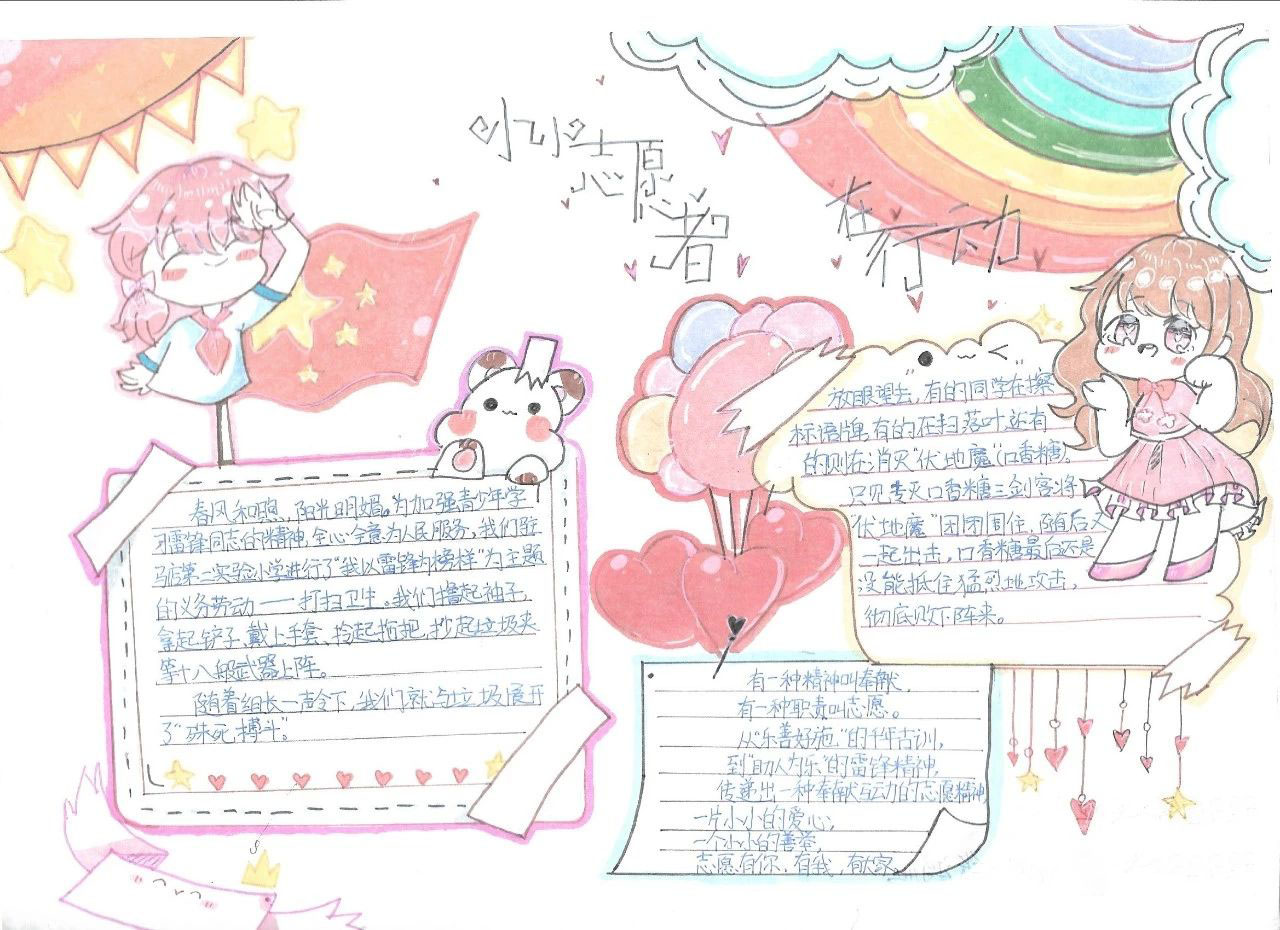 小小志愿者在行动
春风和煦，阳光明媚。为加强青少年学
习雷锋同志的精神，全心全意为人民服务，我们驻
马店第二实验小学进行了“我以雷锋为榜样”为主题
的义务劳动——打扫卫生。我们撸起袖子，
拿起铲子、戴上手套、拎起拖把，抄起垃圾夹
等十八般武器上阵。
随着组长一声令下，我们就与垃圾展开
了“殊死搏斗”。
放眼望去，有的同学在擦
标语牌，有的在扫落叶，还有
的则在消灭“伏地魔”（口香糖）。
只见专灭口香糖三剑客将
“伏地魔”团团围住，随后又
一起出击，口香糖最后还是
没能抵住猛烈地攻击，
彻底败下阵来。
有一种精神叫奉献，
有一种职责叫志愿。
从“乐善好施”的千年古训，
到“助人为乐”的雷锋精神，
传递出一种奉献与动的志愿精神
一片小小的爱心；
一个小小的善举，
志愿有你，有我，有大家。